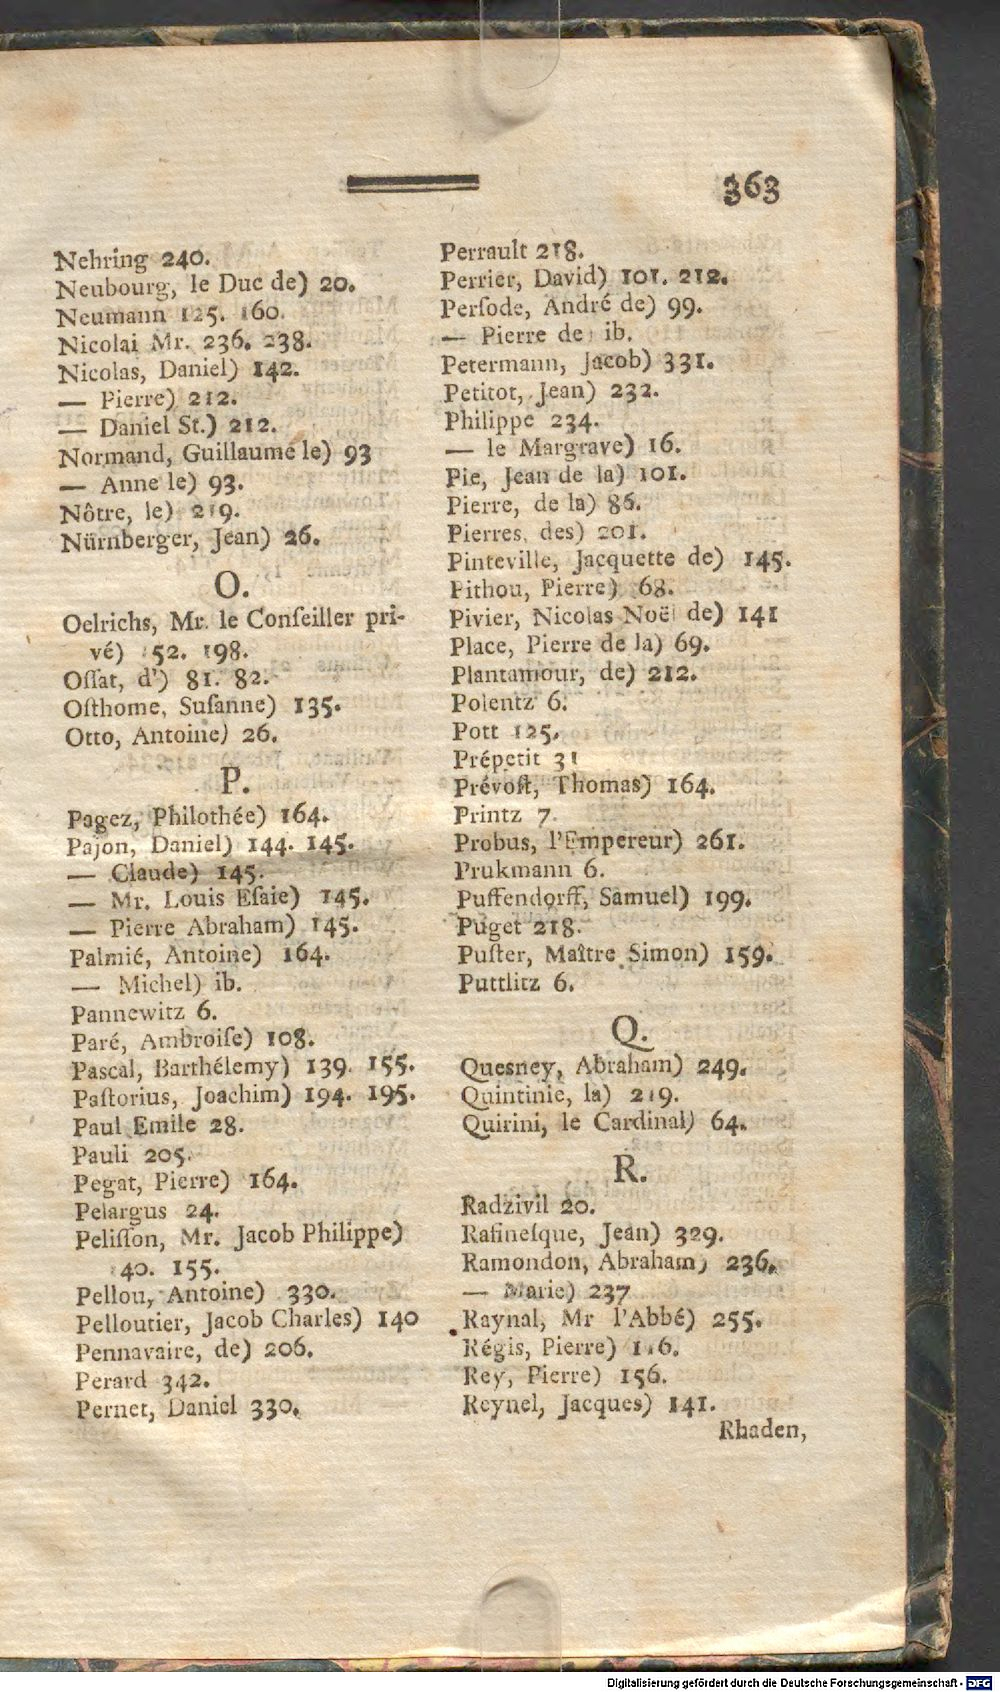 363
Nehring 240.
Neubourg, le Duc de) 20.
Neumann 125. 160.
Nicolai Mr. 236. 238.
Nicolas, Daniel) 142.
— Pierre) 212.
— Daniel St.) 212.
Normand, Guillaume le) 93
— Anne le) 93.
Nôtre, le) 219.
Nürnberger, Jean) 26.
O.
Oelrichs, Mr. le Conſeiller pri-
vé) 152. 198.
Oſſat, d') 81. 82.
Oſthome, Suſanne) 135.
Otto, Antoine) 26.
P.
Pagez, Philothée) 164.
Pajon, Daniel) 144. 145.
— Claude) 145.
— Mr. Louis Eſaie) 145.
— Pierre Abraham) 145.
Palmié, Antoine) 164.
— Michel) ib.
Pannewitz 6.
Paré, Ambroiſe) 108.
Pascal, Barthélemy) 139. 155.
Paſtorius, Joachim) 194. 195.
Paul Emile 28.
Pauli 205.
Pegat, Pierre) 164.
Pelargus 24.
Peliſſon, Mr. Jacob Philippe)
140. 155.
Pellou, Antoine) 330.
Pelloutier, Jacob Charles) 140
Pennavaire, de) 206.
Perard 342.
Pernet, Daniel 330.
Perrault 218.
Perrier, David) 101. 212.
Perſode, André de) 99.
— Pierre de) ib.
Petermann, Jacob) 331.
Petitot, Jean) 232.
Philippe 234.
— le Margrave) 16.
Pie, Jean de la) 101.
Pierre, de la) 86.
Pierres, des) 201.
Pinteville, Jacquette de) 145.
Pithou, Pierre) 68.
Pivier, Nicolas Noël de) 141
Place, Pierre de la) 69.
Plantamour, de) 212.
Polentz 6.
Pott 125.
Prépetit 31
Prévoſt, Thomas) 164.
Printz 7.
Probus, l'Empereur) 261.
Prukmann 6.
Puffendorff, Samuel) 199.
Puget 218.
Puſter, Maître Simon) 159.
Puttlitz 6.
Q.
Quesney, Abraham) 249.
Quintinie, la) 219.
Quirini, le Cardinal) 64.
R.
Radzivil 20.
Rafineſque, Jean) 329.
Ramondon, Abraham) 236.
— Marie) 237
Raynal, Mr l'Abbé) 255.
Régis, Pierre) 116.
Rey, Pierre) 156.
Reynel, Jacques) 141.
Rhaden,
Digitalisierung gefördert durch die Deutsche Forschungsgemeinschaft - DFG